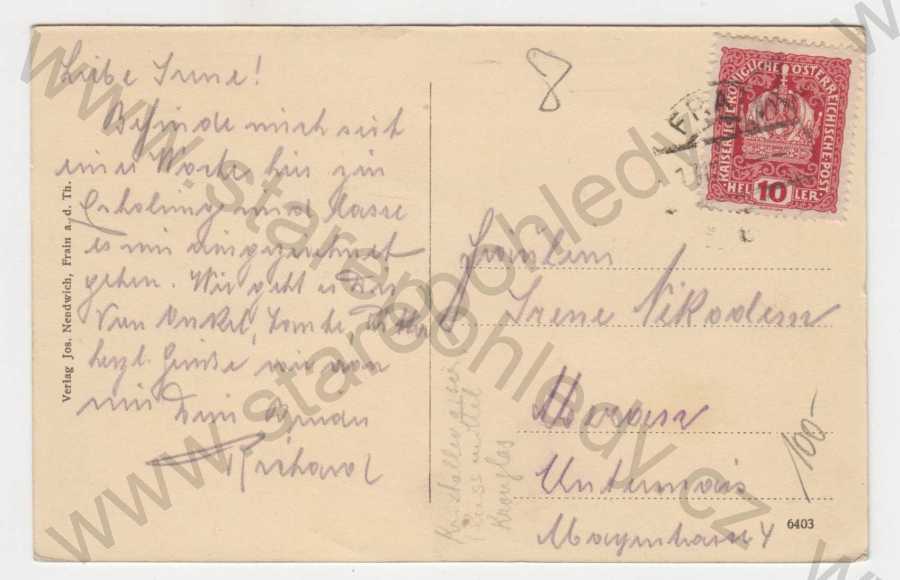 Liebe Irene!
Befinde mich seit
einer Woche hier zur
Erholung und lasse
es mir ausgezeichnet
gehen. Wie geht es Dir
Von Onkel, Tante,
herzl. Grüße, wie von
mir Dein
Richard
Verlag Jos. Nendwich, Frain a. d. Th.
8
FRA
KAISERLICHE KÖNIGLICHE ÖSTERREICHISCHE POST
HELLER
10
Fräulein
Irene Nikodem
Meran
Untermais
100-
6403
www.starepohledy.cz